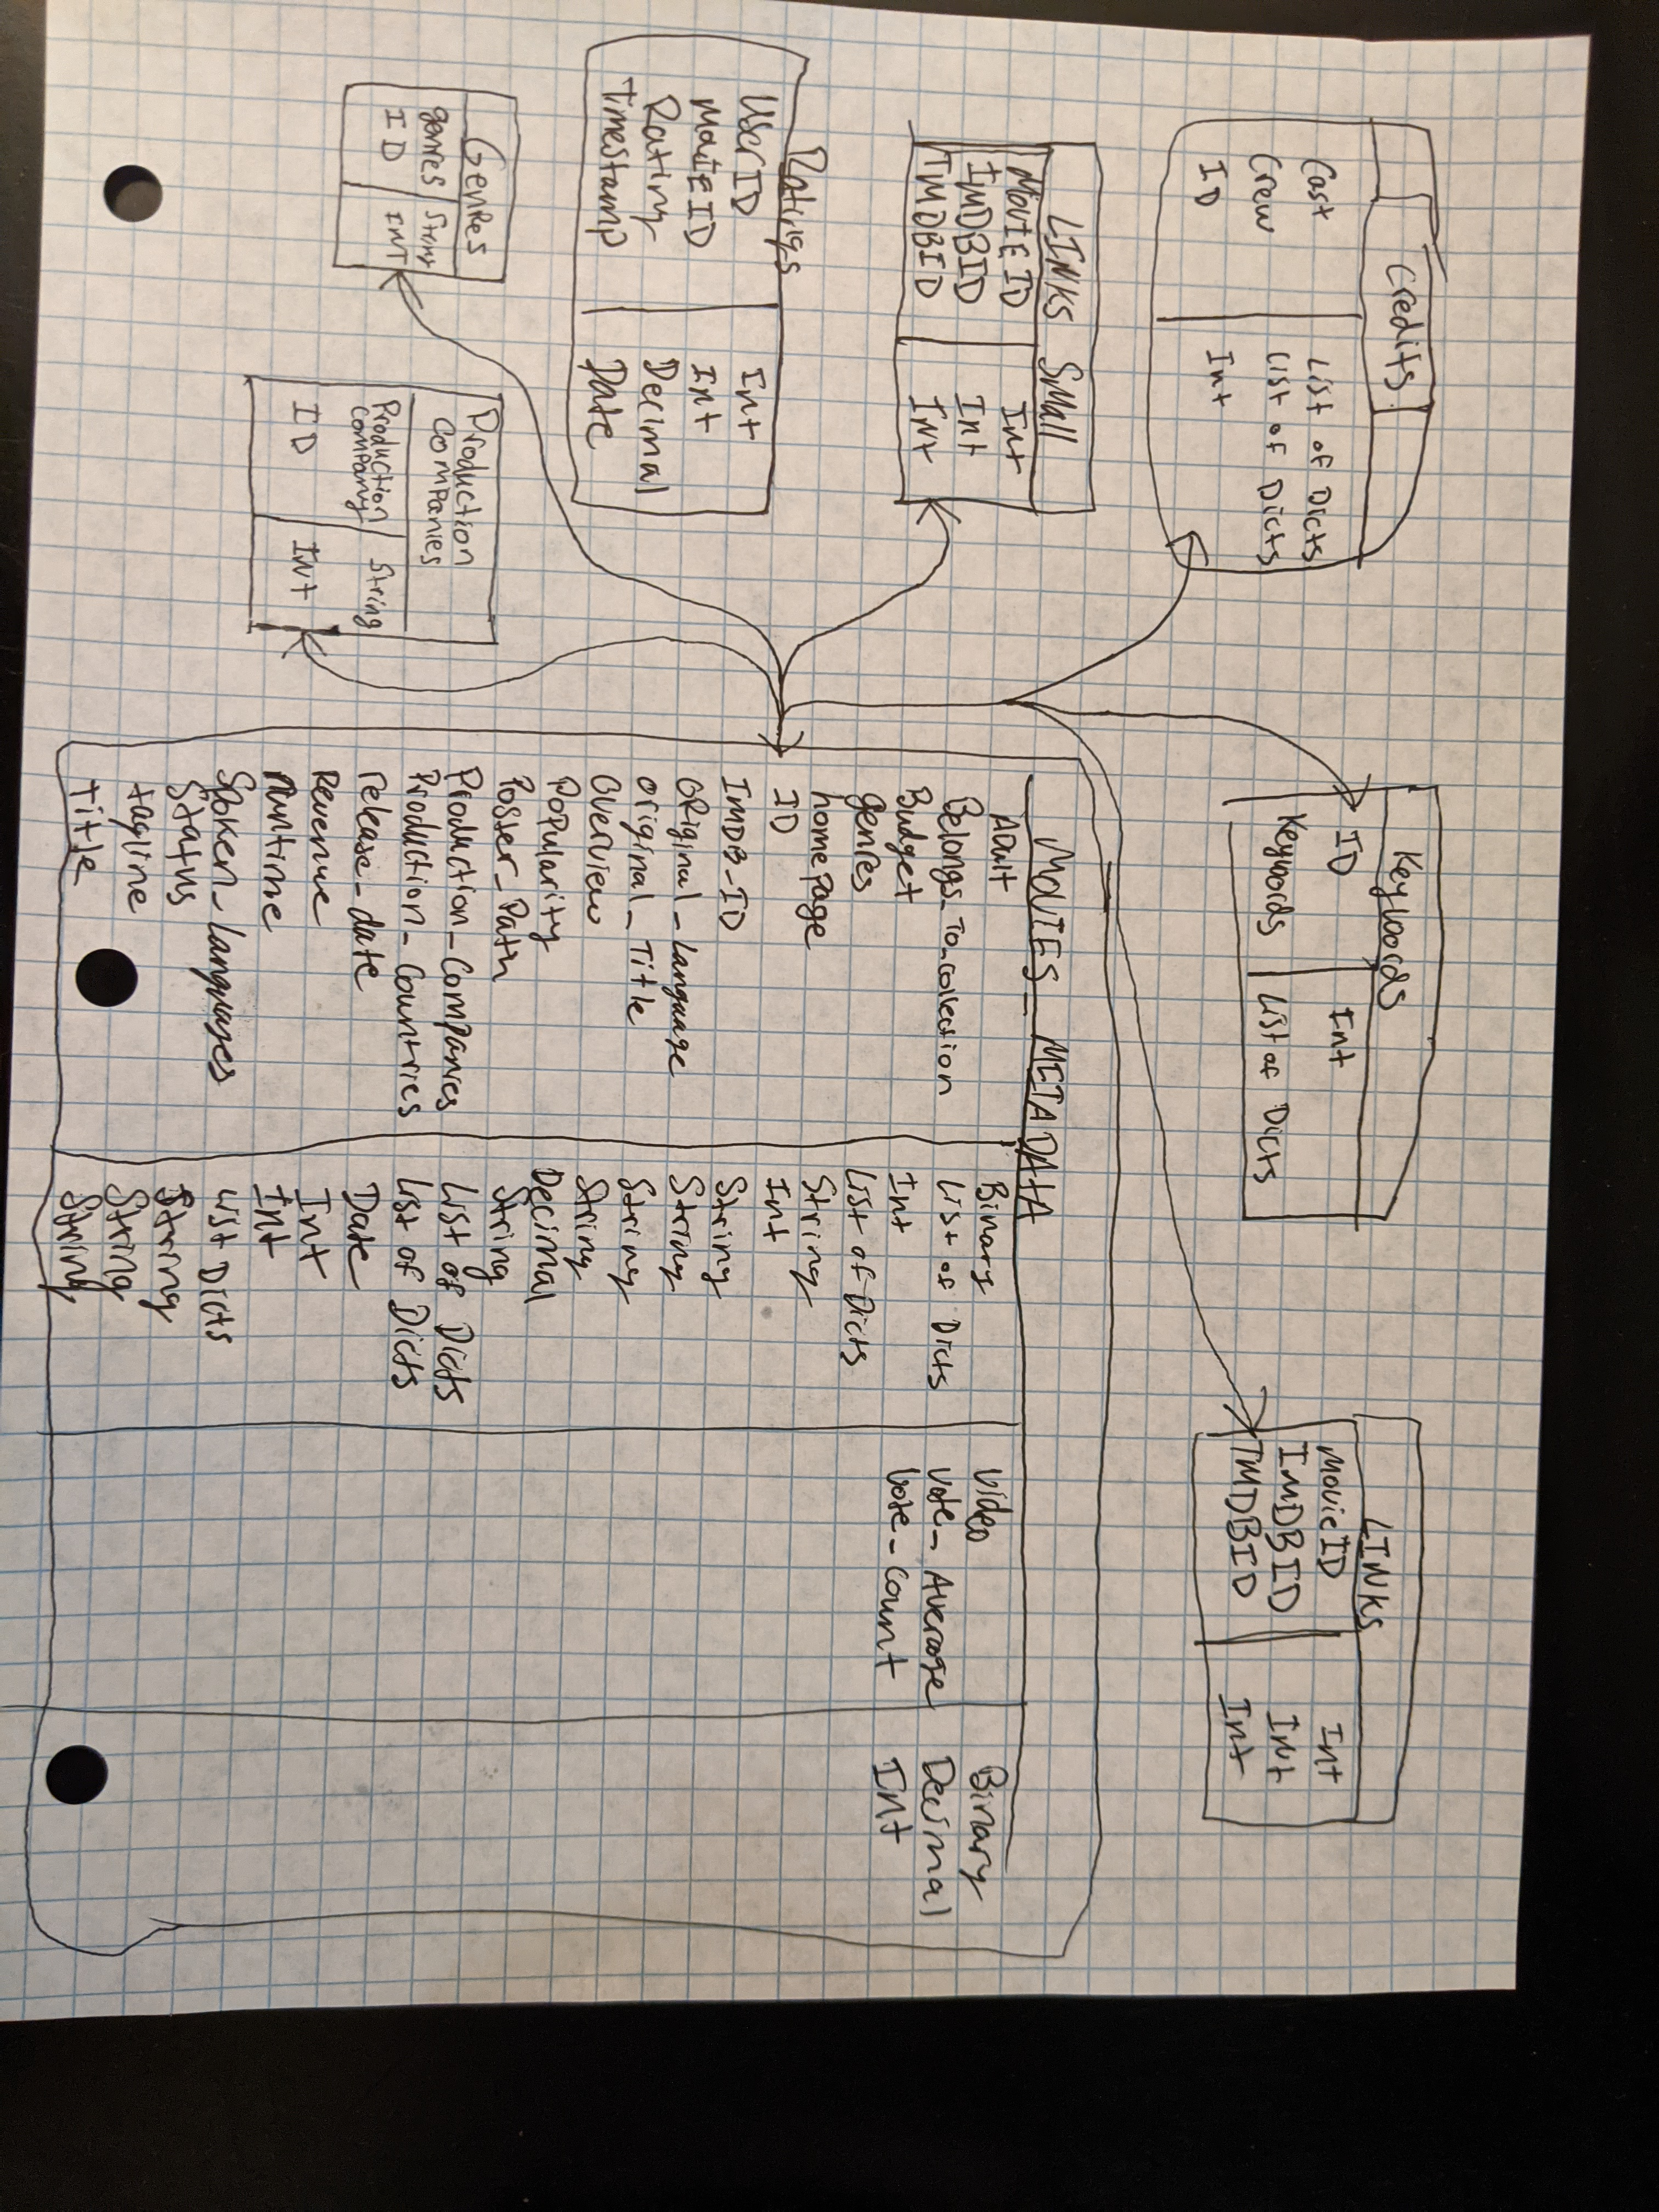 Credits
Cast List of Dicts
Crew List of Dicts
ID Int
Keywords
ID Int
Keywords List of Dicts
LINKS
MovieID Int
ImDBID Int
TMDBID Int
LINKS Small
MovIE ID Int
IMDBID Int
TMDBID INt
Ratings
UserID Int
MovIEID Int
Rating Decimal
Timestamp Date
GenRes
genres String
ID INT
Production
Companies
Production
Company String
ID INt
MOVIES_METADATA
ADult Binary
Belongs_To_collection List of Dicts
Budget Int
genres List of Dicts
homepage String
ID Int
ImDB-ID String
ORiginal_language String
original_Title String
Overview String
Popularity Decimal
Poster_Path String
Production_Companies List of Dicts
Production_Countries List of Dicts
release_date Date
Revenue Int
Runtime Int
Spoken_languages List Dicts
Status String
tagline String
Title String
Video Binary
Vote_Average Decimal
Vote_Count Int